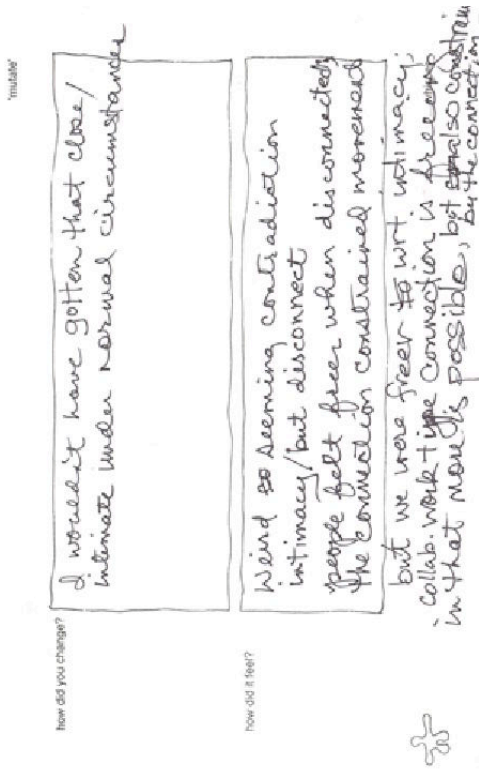 'mutate'
how did you change?
I wouldn't have gotten that close/
intimate under normal circumstances
how did it feel?
Weird so seeming contradiation
intimacy/but disconnect
people felt freer when disconnected
the connection constrained movement
but we were freer to wrt intimacy;
collab. work type connection is freeing
in that more is possible, but also constrain
by the connection